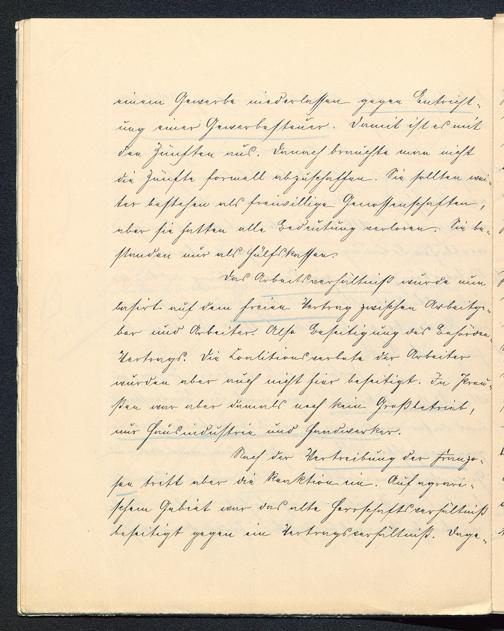 einem Gewerbe niederlassen gegen Entricht-
ung einer Gewerbesteuer. Damit ist es mit
den Zünften aus. Danach brauchte man nicht
die Zünfte formell abzuschaffen. Sie sollten wei-
ter bestehen als freiwillige Genossenschaften,
aber sie hatten alle Bedeutung verloren. Sie be-
standen nur als Hülfskassen.
Das Arbeitsverhältniß wurde nun
basirt auf dem freien Vertrag zwischen Arbeitge-
ber und Arbeiter. Also Beseitigung des
Vertrags. Die Coalitionsverbote der Arbeiter
wurden aber auch nicht hier beseitigt. In Preu-
ßen war aber damals noch kein Großbetrieb,
nur Hausindustrie und Handwerker.
Nach der Vertreibung der Franzo-
sen tritt aber die Reaktion ein. Auf agrari-
schem Gebiet war das alte Herrschaftsverhältniß
beseitigt gegen ein Vertragsverhältniß. Dage-